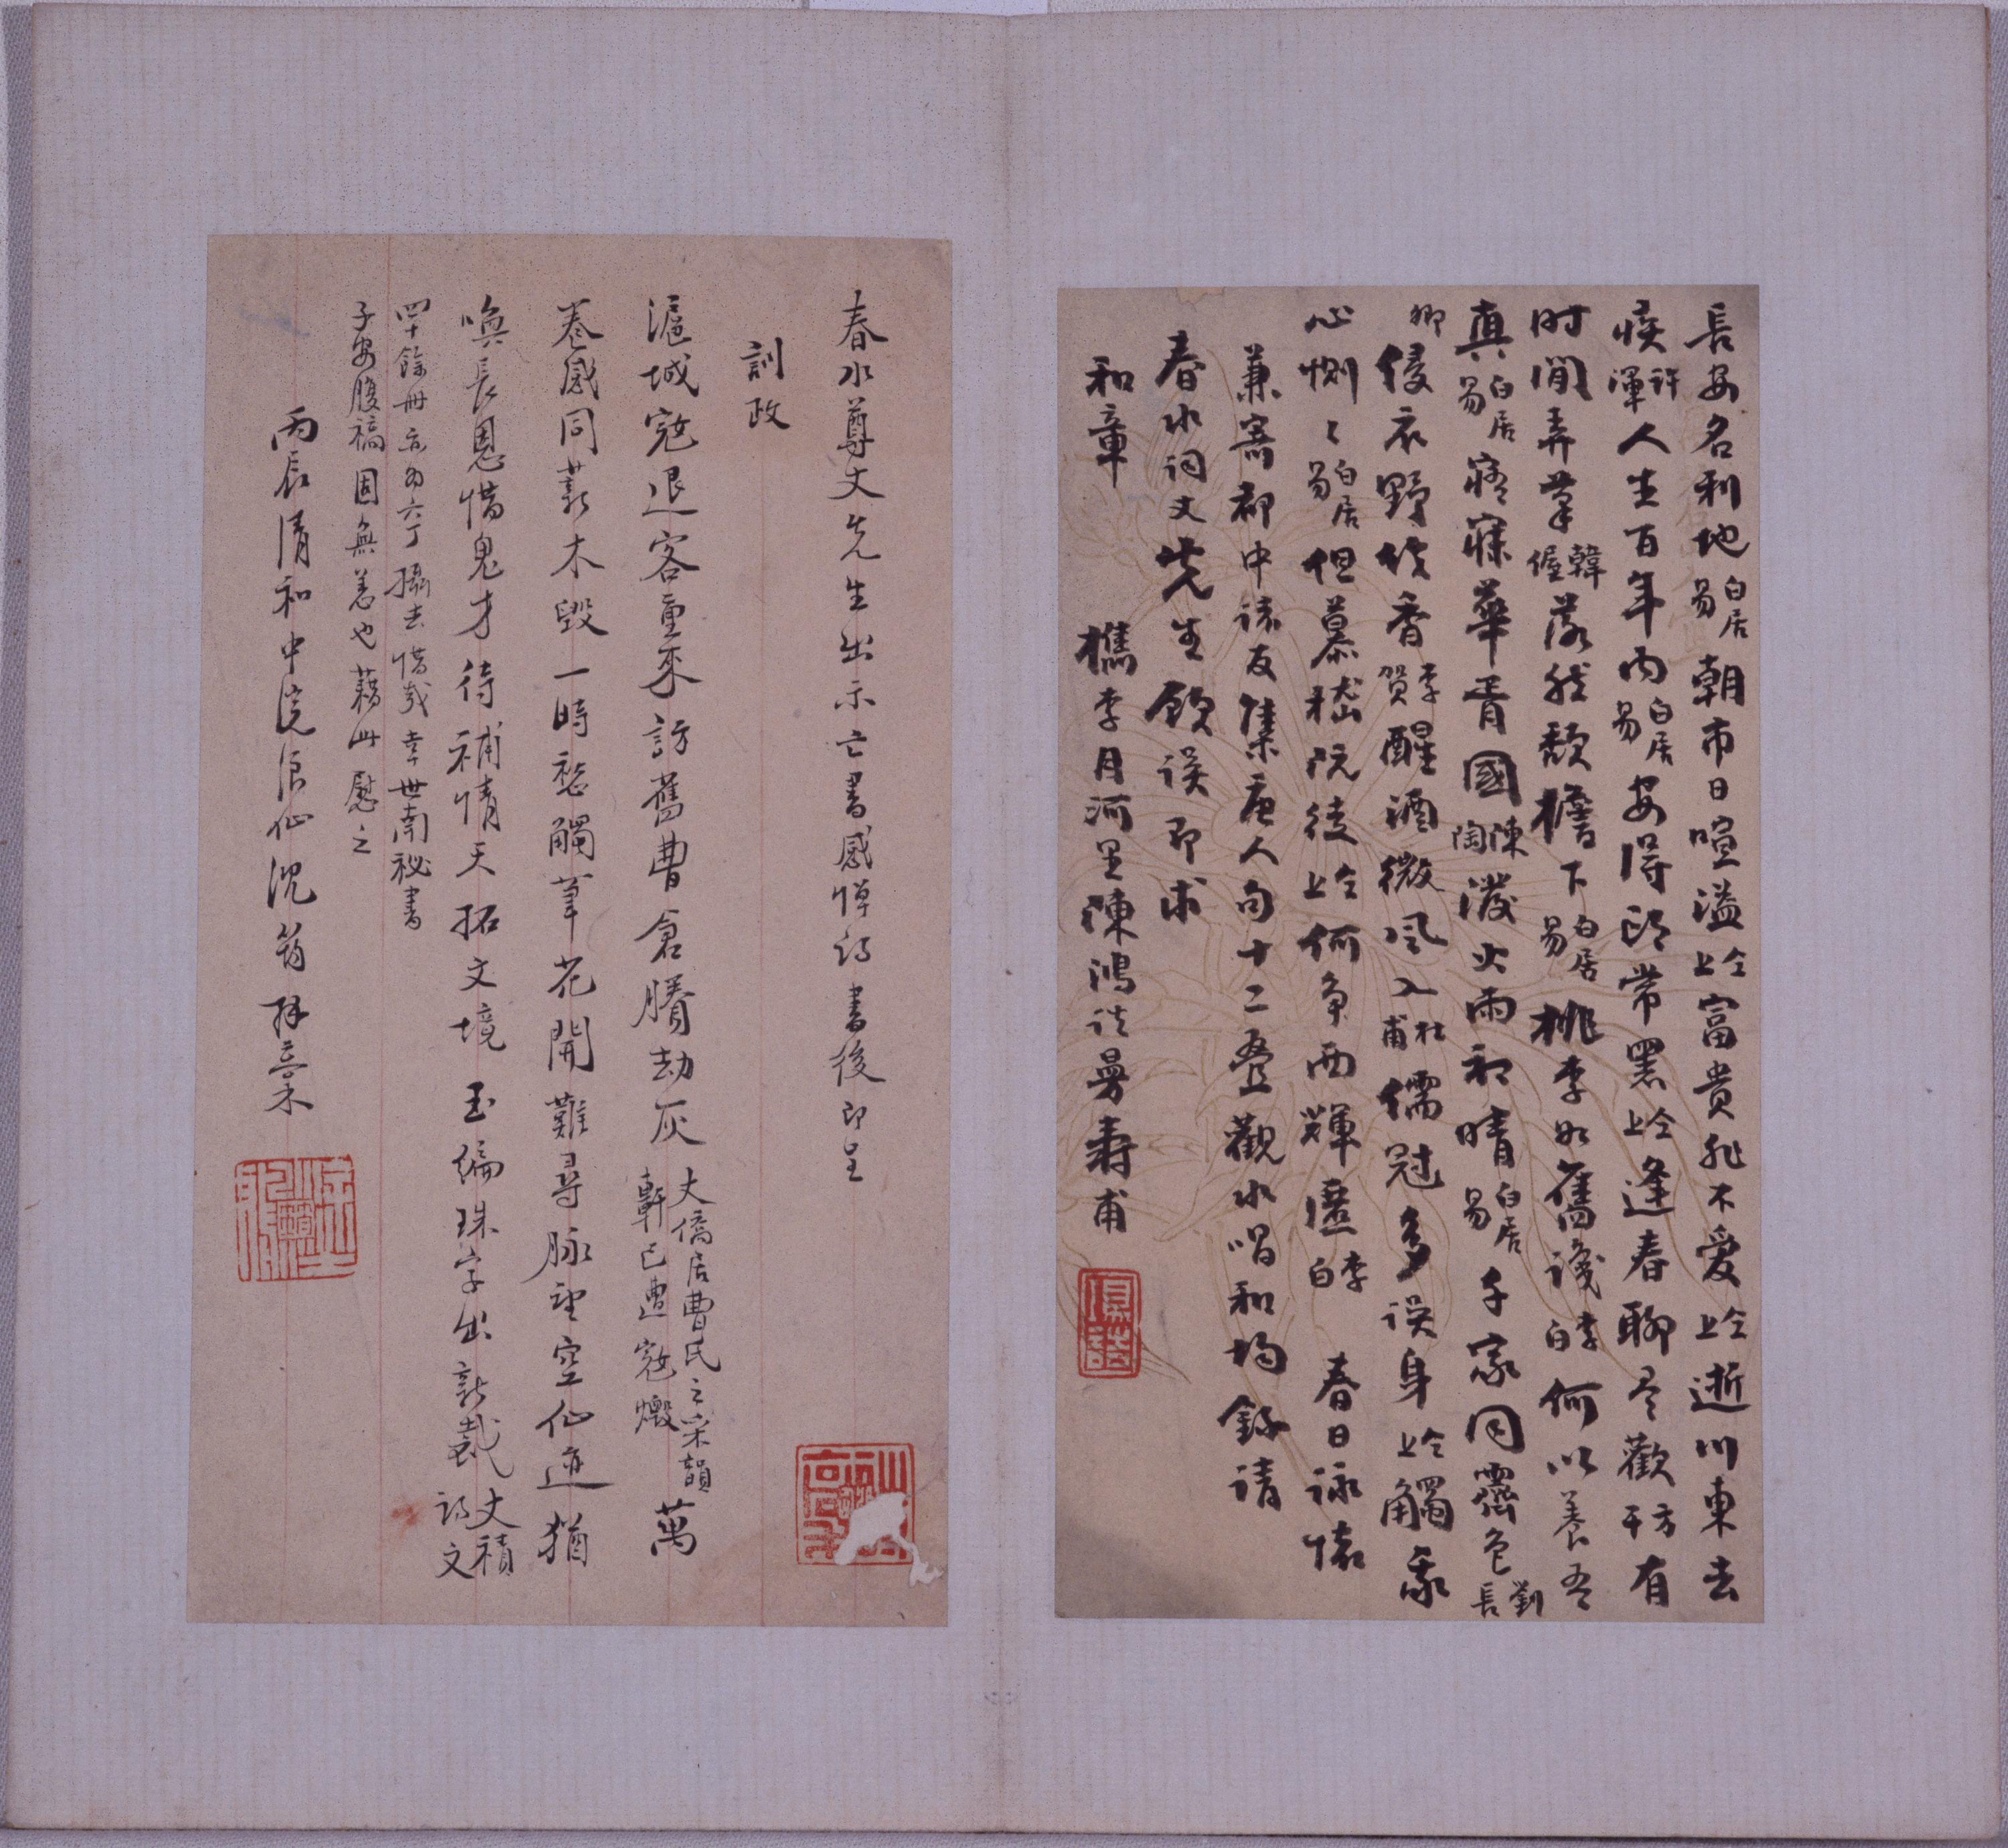 長安名利地白居易朝市日喧溢仝上富貴非不愛仝上逝川東去
疾許渾人生百年內白居易安得形常黑仝上逢春聊尽歡方干有
时閒弄筆韓偓蕭然頹檐下白居易桃李如舊識李白何以養吾
真白居易寤寐華胥國陳陶潑火雨初晴白居易千家同霽色劉長
卿侵衣野竹香李賀醒酒微風入杜甫儒冠多誤身仝上觸我
心惻〻白居易但慕嵇阮徒仝上何爭西輝匿李白 春日詠懷
兼寄都中諸友集唐人句十二叠觀水唱和均錄請
春水詞丈先生顧误即求
和章 檇李月河里陳鴻誥曼壽甫
春水尊丈先生出示亡書感悼詩書後即呈
訓政
滬城寇退客重來訪舊曹倉賸劫灰丈僑居曹氏之采韻軒已遭寇燬萬
卷感同叢木毀一時愁觸筆花開難尋脉望空仙迹猶
喚長恩惜鬼才待補情天拓文境玉編珠字出新裁丈積詩文
四十餘冊亦為六丁攝去惜哉幸世南秘書
子安腹稿固無恙也藉此慰之
丙辰清和中浣浪仙沈筠拜稾